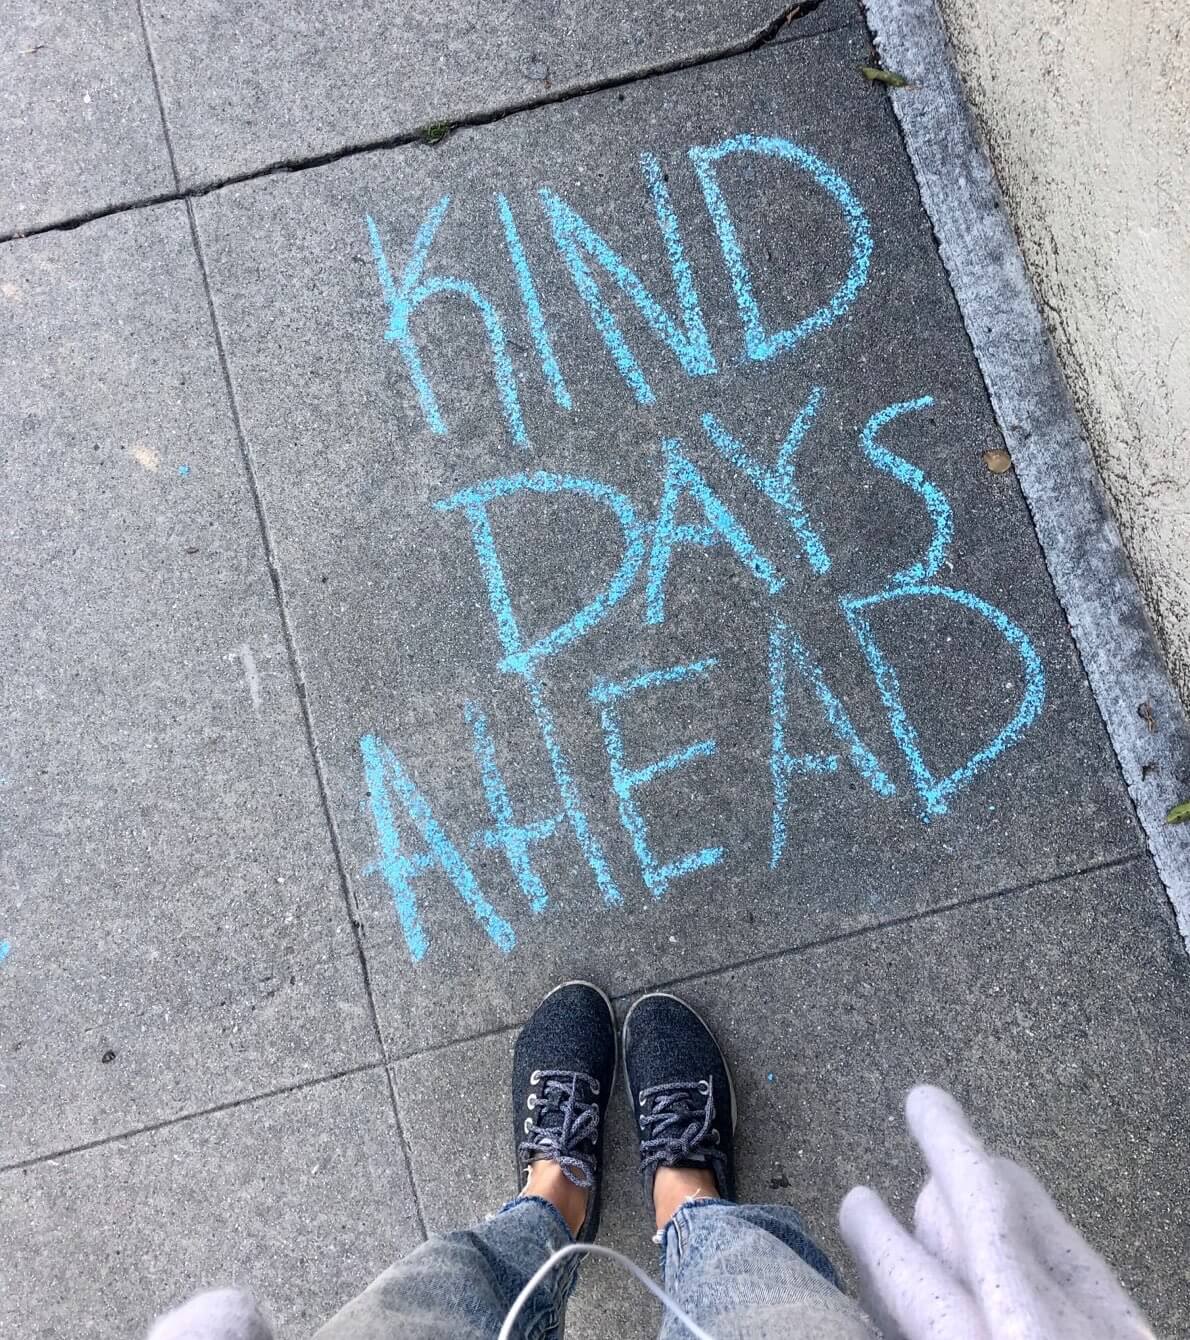 KIND
DAYS
AHEAD